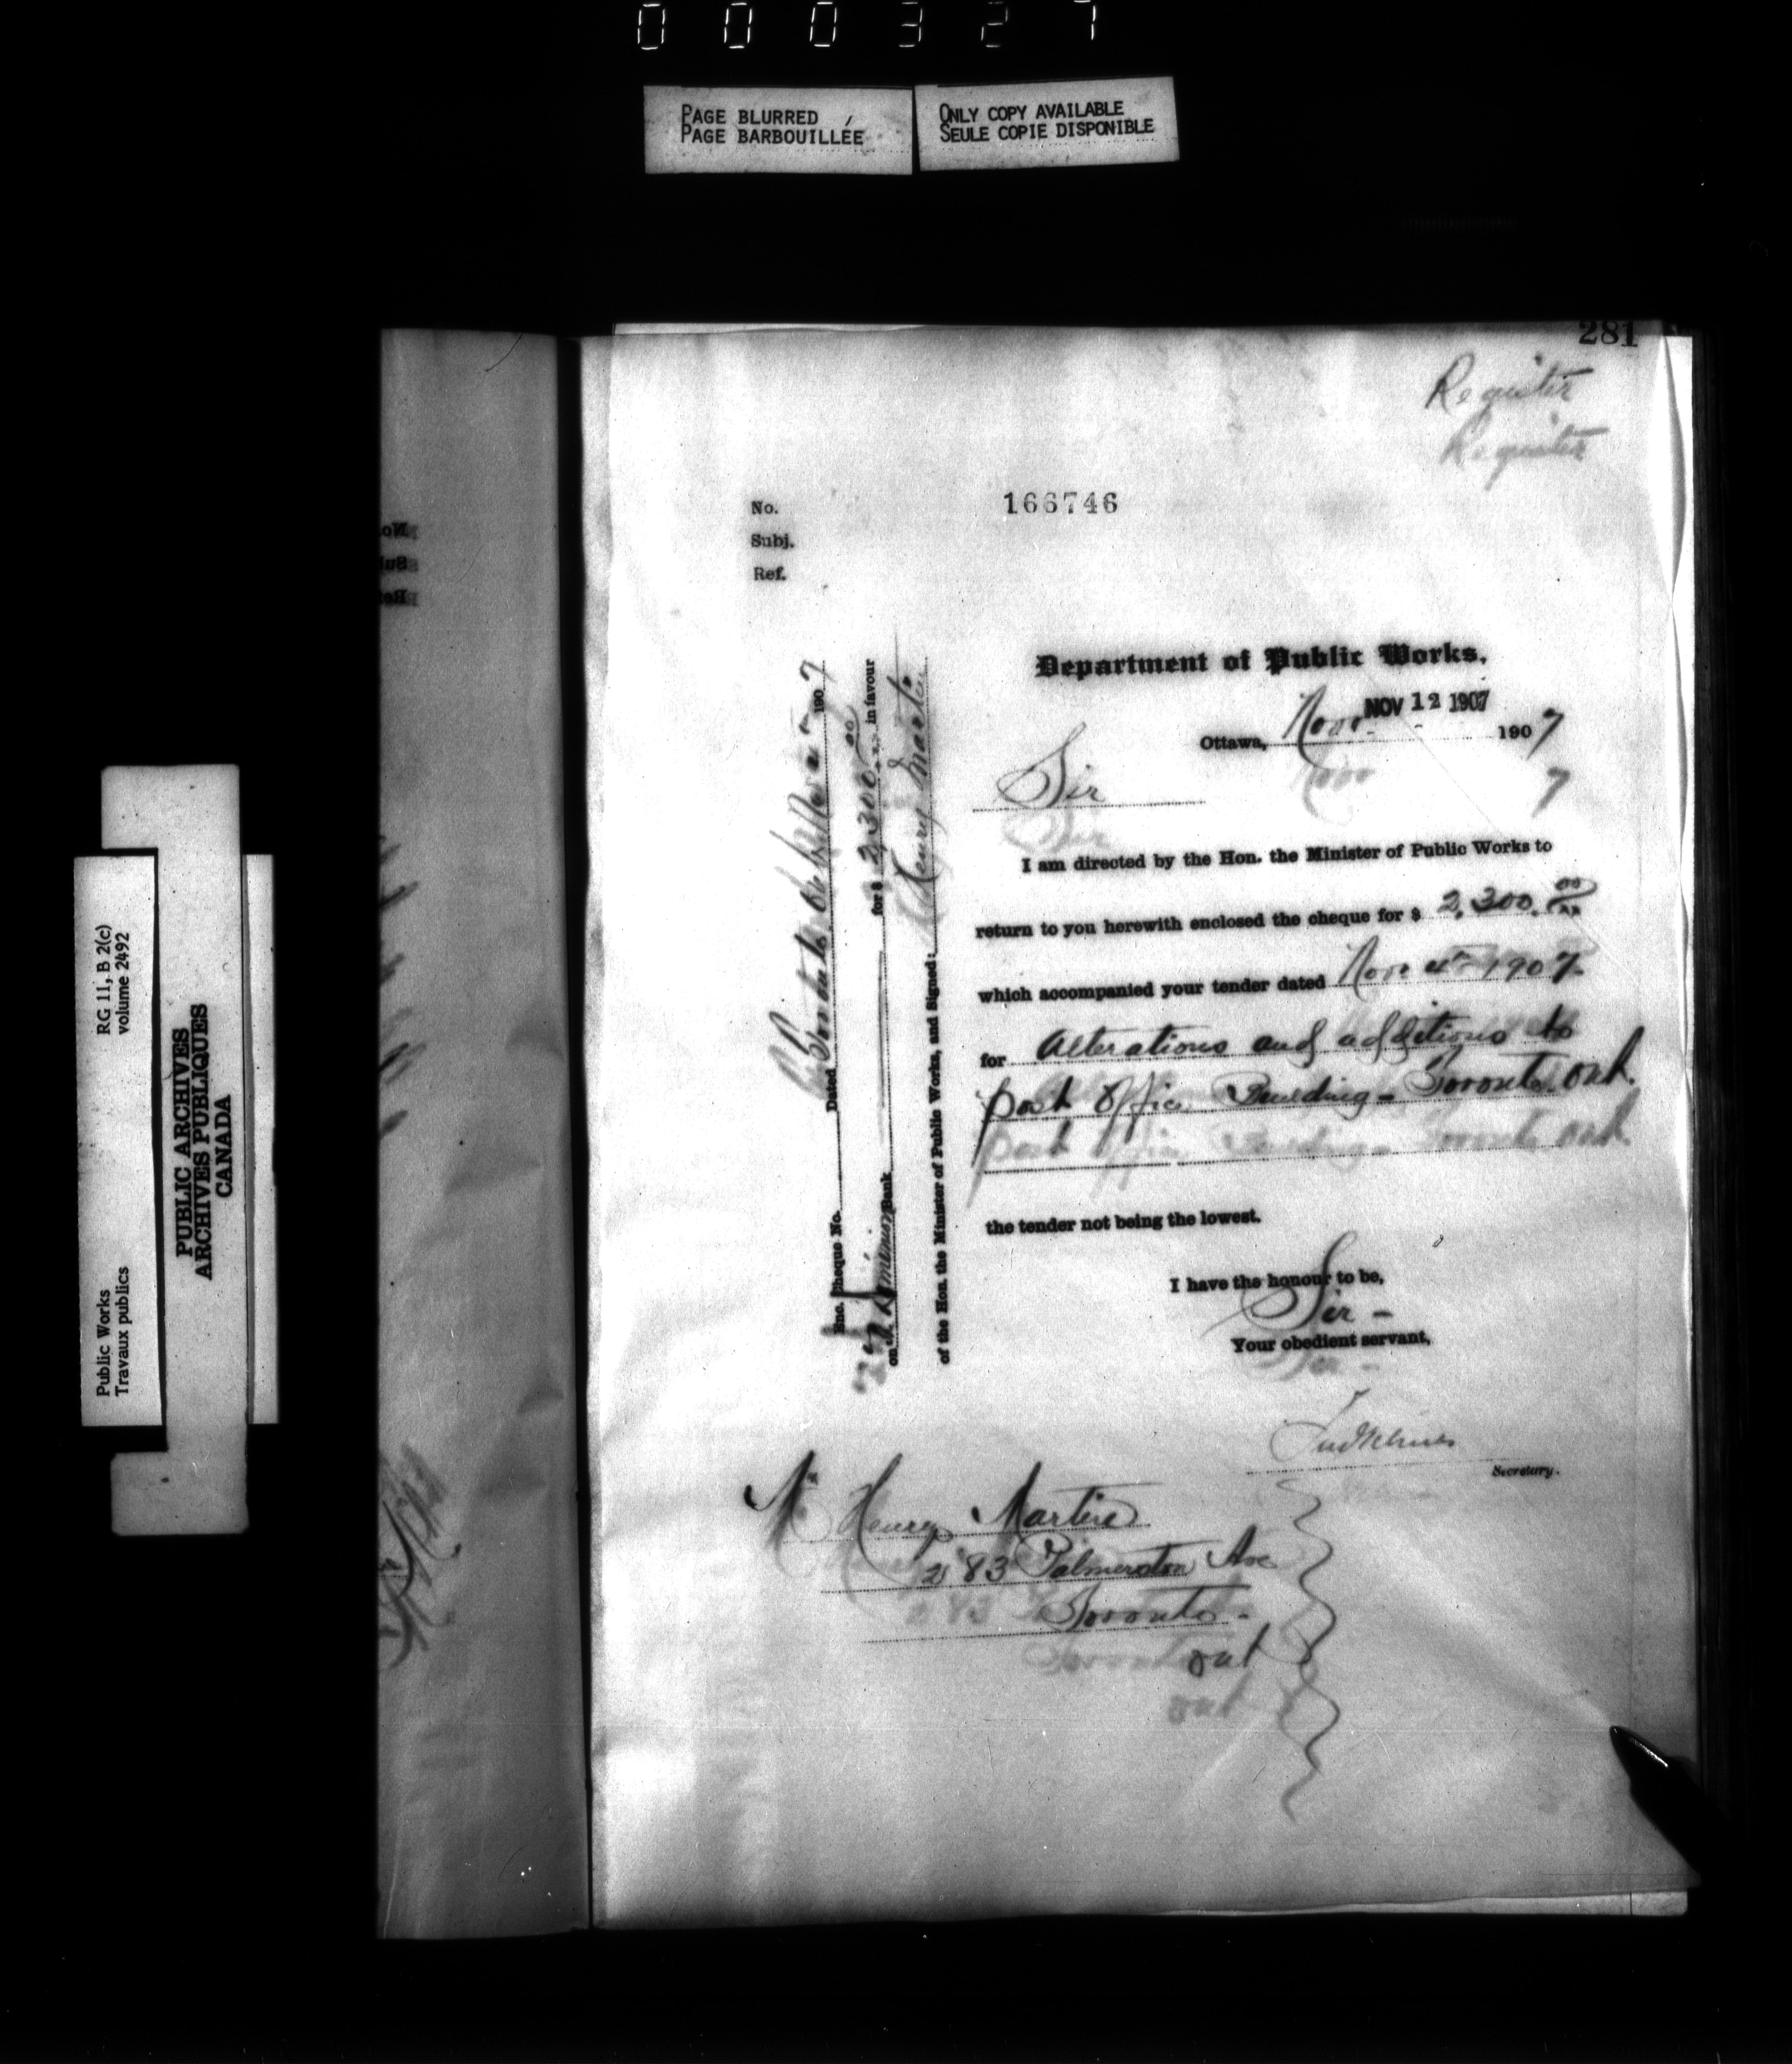 000327
PAGE BLURRED
PAGE BARBOUILLÉE
ONLY COPY AVAILABLE
SEULE COPIE DISPONIBLE
281
Register
Register
No. 166746
Subj.
Ref.
Department of Public Works.
NOV 12 1907
Ottawa, Nov. 1907
Sir
I am directed by the Hon. the Minister of Public Works to
return to you herewith enclosed the cheque for $ 2,300.00
which accompanied your tender dated Nov 4th 1907
for Alterations and additions to
post Office Building - Toronto. Ont.
the tender not being the lowest.
I have the honour to be,
Sir -
Your obedient servant,
Secretary.
Mr Henry Martin
283 Palmerston Ave
Toronto -
Ont
Enc. Cheque No. Dated Toronto 1907
on the Dominion Bank for $ 2,300.00 in favour
of the Hon. the Minister of Public Works, and Signed: Henry Martin
Public Works RG 11, B 2(c)
Travaux publics volume 2492
PUBLIC ARCHIVES
ARCHIVES PUBLIQUES
CANADA